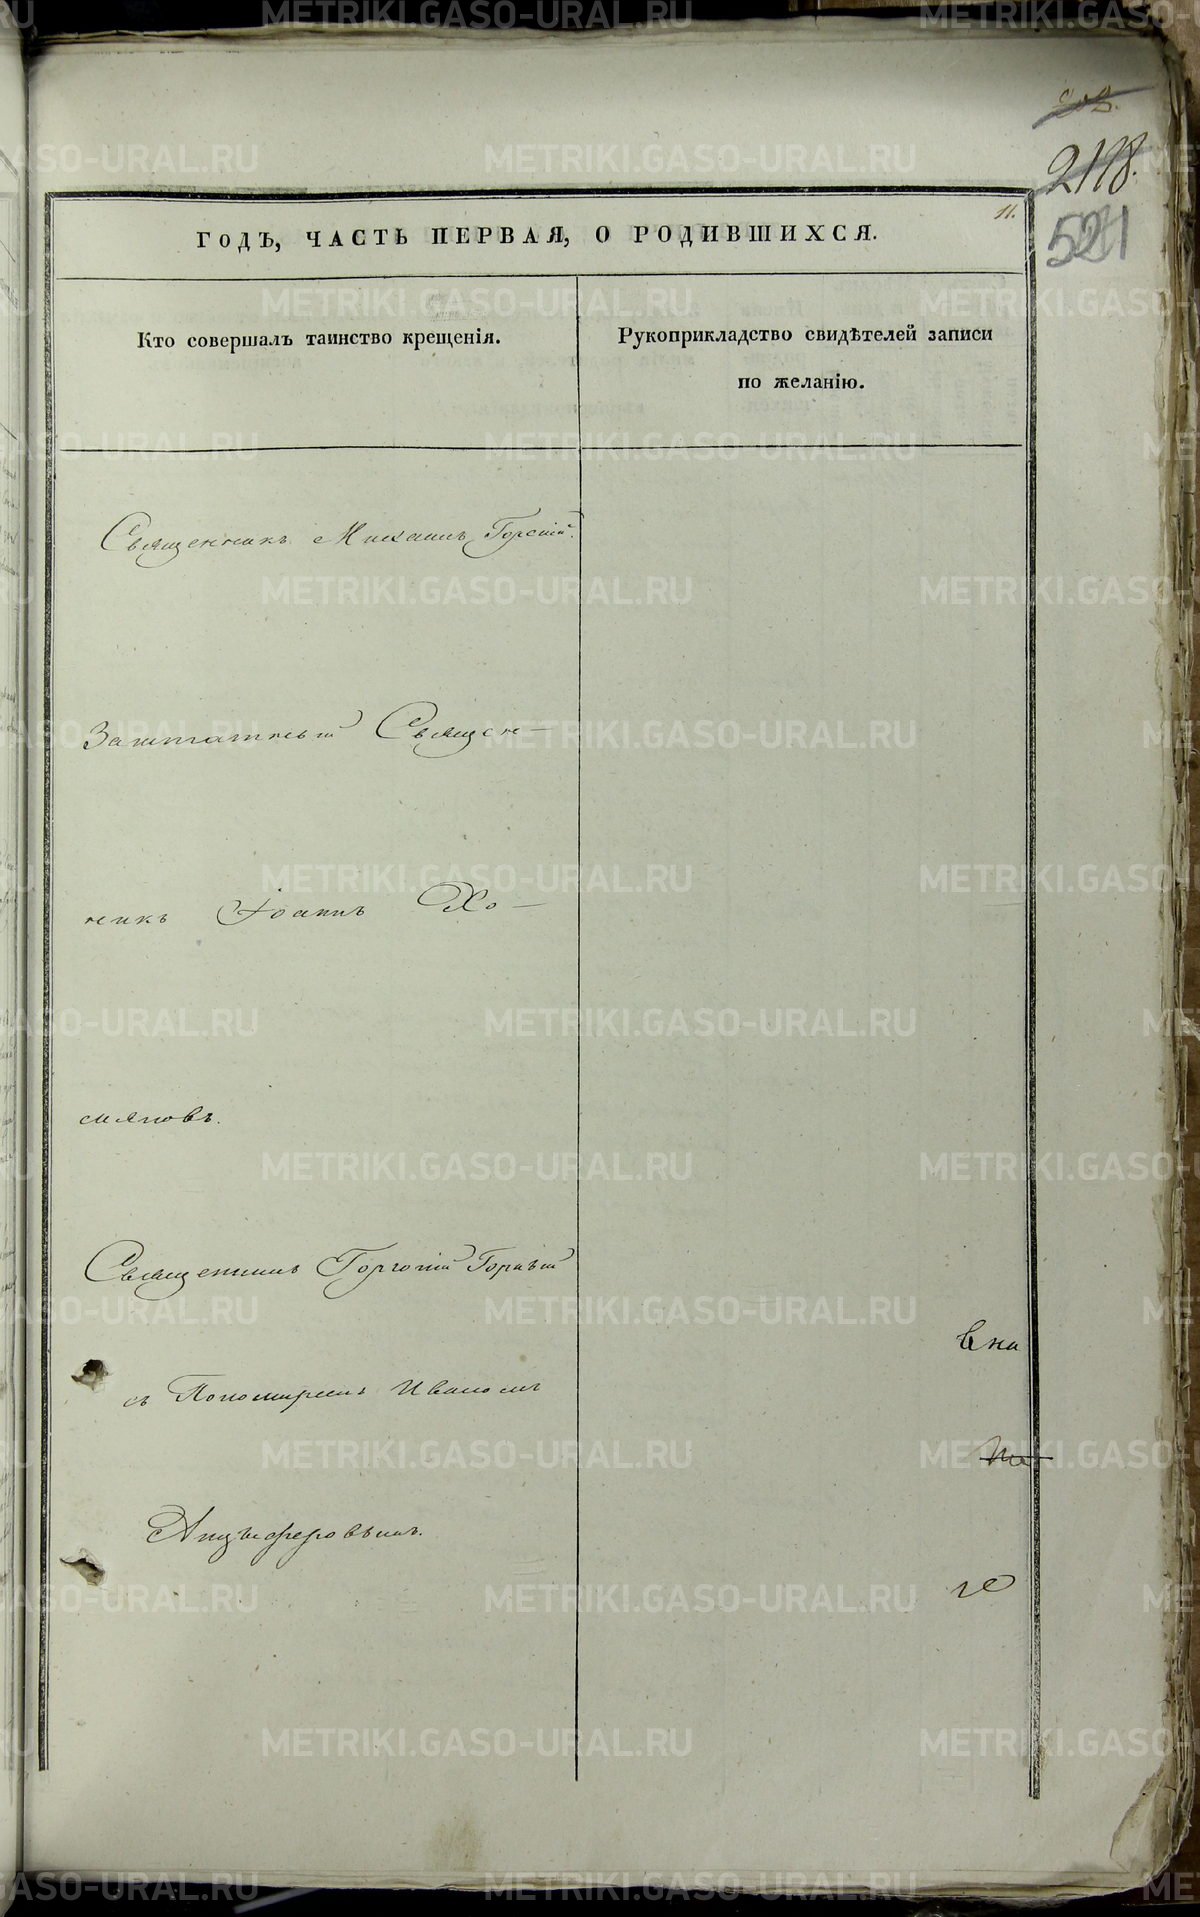 202.
2118.
521
11.
ГОДЪ, ЧАСТЬ ПЕРВАЯ, О РОДИВШИХСЯ.
Кто совершалъ таинство крещенія.
Рукоприкладство свидѣтелей записи
по желанію.
Священникъ Михаилъ Горскій.
Заштатный Священ-
никъ Іоаннъ Хо-
мяковъ.
Священникъ Горгоній Горный
съ Пономаремъ Иваномъ
Анцыферовымъ.
вна
го
METRIKI.GASO-URAL.RU